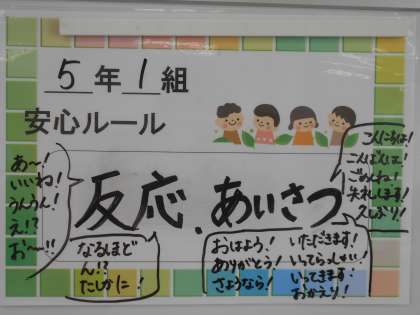 5年1組
安心ルール
反応、あいさつ
あ～！
いいね！
うんうん！
え！？
お～!!
なるほど
ん！？
たしかに！
おはよう！
ありがとう！
さようなら！
いただきます！
いってらっしゃい！
いってきます！
おかえり！
こんにちは！
こんばんは！
ごめんね！
失礼します！